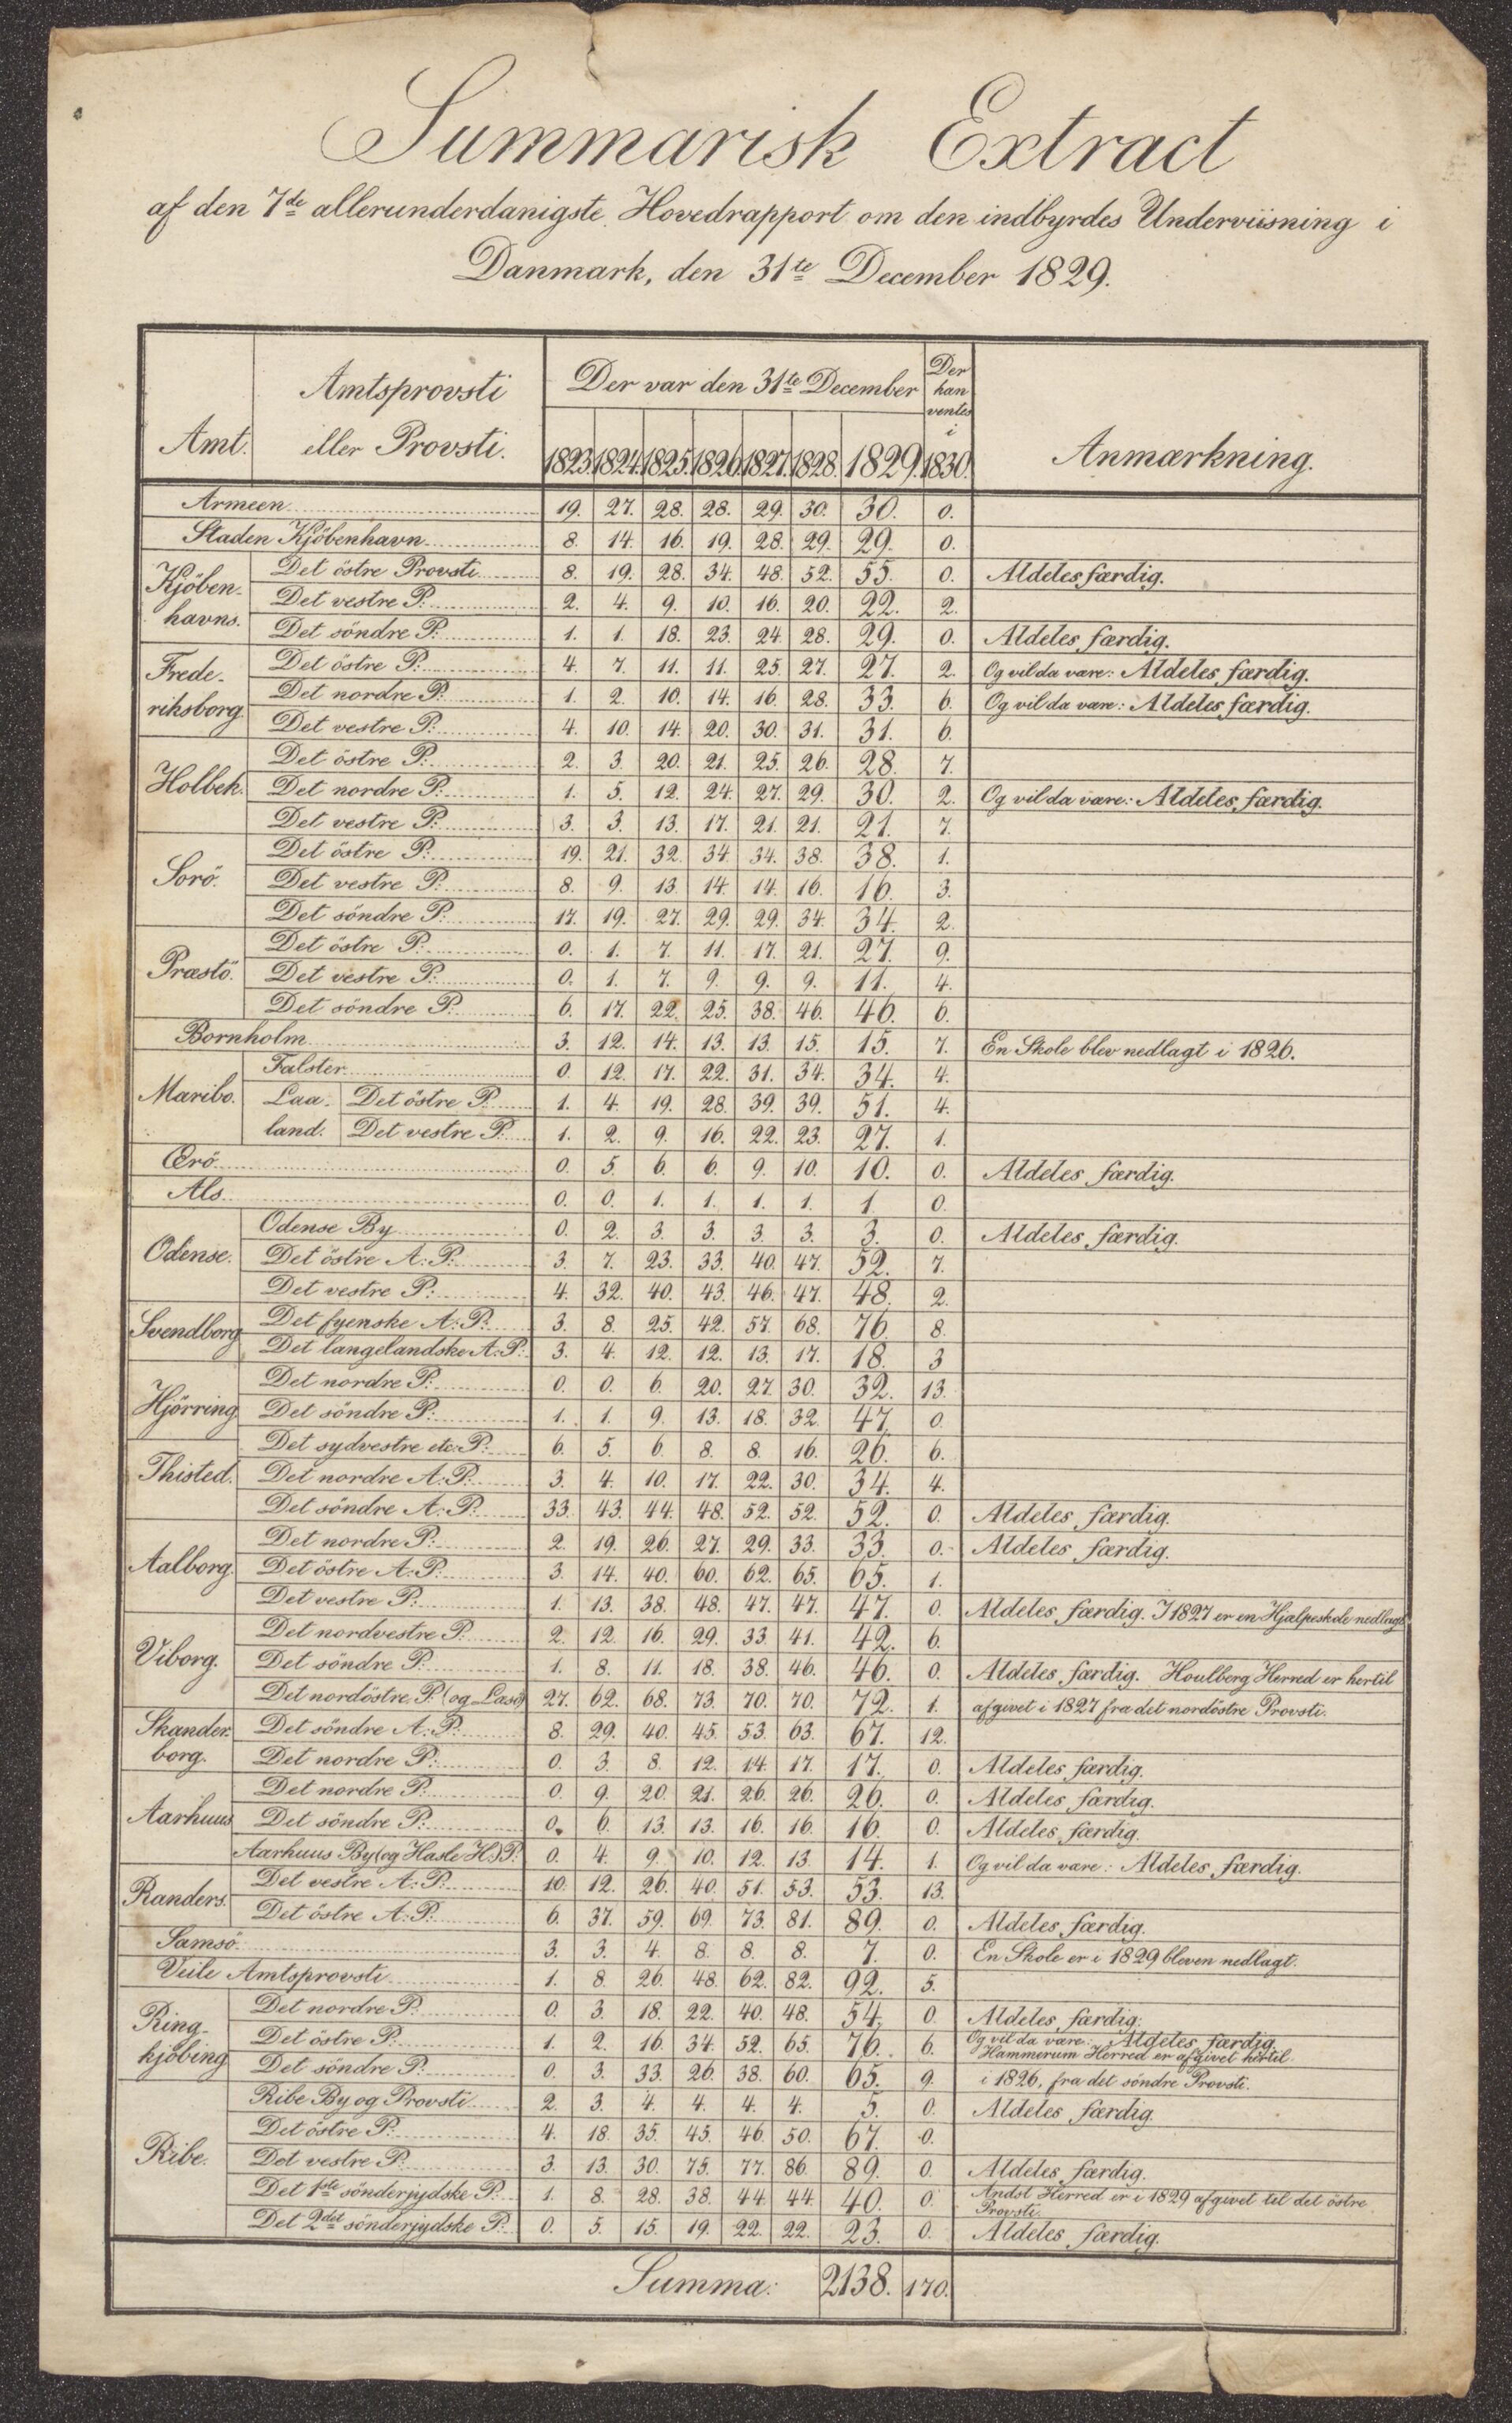 Summarisk Extract
af den 7de allerunderdanigste Hovedrapport om den indbyrdes Underviisning i
Danmark, den 31te December 1829.
Amt. Amtsprovsti eller Provsti. Der var den 31te December Der kan ventes i Anmærkning.
1823. 1824. 1825. 1826. 1827. 1828. 1829. 1830.
Armeen 19. 27. 28. 28. 29. 30. 30. 0.
Staden Kjöbenhavn 8. 14. 16. 19. 28. 29. 29. 0.
Kjöben-havns. Det östre Provsti 8. 19. 28. 34. 48. 52. 55. 0. Aldeles færdig.
Det vestre P. 2. 4. 9. 10. 16. 20. 22. 2.
Det söndre P. 1. 1. 18. 23. 24. 28. 29. 0. Aldeles færdig.
Frede-riksborg. Det östre P. 4. 7. 11. 11. 25. 27. 27. 2. Og vil da være: Aldeles færdig.
Det nordre P. 1. 2. 10. 14. 16. 28. 33. 6. Og vil da være: Aldeles færdig.
Det vestre P. 4. 10. 14. 20. 30. 31. 31. 6.
Holbek. Det östre P. 2. 3. 20. 21. 25. 26. 28. 7.
Det nordre P. 1. 5. 12. 24. 27. 29. 30. 2. Og vil da være: Aldeles færdig.
Det vestre P. 3. 3. 13. 17. 21. 21. 21. 7.
Sorö. Det östre P. 19. 21. 32. 34. 34. 38. 38. 1.
Det vestre P. 8. 9. 13. 14. 14. 16. 16. 3.
Det söndre P. 17. 19. 27. 29. 29. 34. 34. 2.
Præstö. Det östre P. 0. 1. 7. 11. 17. 21. 27. 9.
Det vestre P. 0. 1. 7. 9. 9. 9. 11. 4.
Det söndre P. 6. 17. 22. 25. 38. 46. 46. 6.
Bornholm 3. 12. 14. 13. 13. 15. 15. 7. En Skole blev nedlagt i 1826.
Maribo. Falster 0. 12. 17. 22. 31. 34. 34. 4.
Laa-land. Det östre P. 1. 4. 19. 28. 39. 39. 51. 4.
Det vestre P. 1. 2. 9. 16. 22. 23. 27. 1.
Œrö 0. 5. 6. 6. 9. 10. 10. 0. Aldeles færdig.
Als. 0. 0. 1. 1. 1. 1. 1. 0.
Odense. Odense By 0. 2. 3. 3. 3. 3. 3. 0. Aldeles færdig.
Det östre A.P. 3. 7. 23. 33. 40. 47. 52. 7.
Det vestre P. 4. 32. 40. 43. 46. 47. 48. 2.
Svendborg Det fyenske A.P. 3. 8. 25. 42. 57. 68. 76. 8.
Det langelandske A.P. 3. 4. 12. 12. 13. 17. 18. 3
Hjörring Det nordre P. 0. 0. 6. 20. 27. 30. 32. 13.
Det söndre P. 1. 1. 9. 13. 18. 32. 47. 0.
Thisted. Det sydvestre etc. P. 6. 5. 6. 8. 8. 16. 26. 6.
Det nordre A.P. 3. 4. 10. 17. 22. 30. 34. 4.
Det söndre A.P. 33. 43. 44. 48. 52. 52. 52. 0. Aldeles færdig.
Aalborg. Det nordre P. 2. 19. 26. 27. 29. 33. 33. 0. Aldeles færdig.
Det östre A.P. 3. 14. 40. 60. 62. 65. 65. 1.
Det vestre P. 1. 13. 38. 48. 47. 47. 47. 0. Aldeles færdig. I 1827 er en Hjælpeskole nedlagt.
Viborg. Det nordvestre P. 2. 12. 16. 29. 33. 41. 42. 6.
Det söndre P. 1. 8. 11. 18. 38. 46. 46. 0. Aldeles færdig. Houlberg Herred er hertil
Det nordöstre P. (og Læsö) 27. 62. 68. 73. 70. 70. 72. 1. afgivet i 1827 fra det nordöstre Provsti.
Skander-borg. Det söndre A.P. 8. 29. 40. 45. 53. 63. 67. 12.
Det nordre P. 0. 3. 8. 12. 14. 17. 17. 0. Aldeles færdig.
Aarhuus Det nordre P. 0. 9. 20. 21. 26. 26. 26. 0. Aldeles færdig.
Det söndre P. 0. 6. 13. 13. 16. 16. 16. 0. Aldeles færdig.
Aarhuus By (og Hasle H.) P. 0. 4. 9. 10. 12. 13. 14. 1. Og vil da være: Aldeles færdig.
Randers. Det vestre A.P. 10. 12. 26. 40. 51. 53. 53. 13.
Det östre A.P. 6. 37. 59. 69. 73. 81. 89. 0. Aldeles færdig.
Samsö 3. 3. 4. 8. 8. 8. 7. 0. En Skole er i 1829 bleven nedlagt.
Veile Amtsprovsti 1. 8. 26. 48. 62. 82. 92. 5.
Ring-kjöbing Det nordre P. 0. 3. 18. 22. 40. 48. 54. 0. Aldeles færdig.
Det östre P. 1. 2. 16. 34. 52. 65. 76. 6. Og vil da være: Aldeles færdig. Hammerum Herred er afgivet hertil
Det söndre P. 0. 3. 33. 26. 38. 60. 65. 9. i 1826, fra det söndre Provsti.
Ribe. Ribe By og Provsti 2. 3. 4. 4. 4. 4. 5. 0. Aldeles færdig.
Det östre P. 4. 18. 35. 45. 46. 50. 67. 0.
Det vestre P. 3. 13. 30. 75. 77. 86. 89. 0. Aldeles færdig.
Det 1ste sönderjydske P. 1. 8. 28. 38. 44. 44. 40. 0. Andst Herred er i 1829 afgivet til det östre Provsti.
Det 2det sönderjydske P. 0. 5. 15. 19. 22. 22. 23. 0. Aldeles færdig.
Summa: 2138. 170.